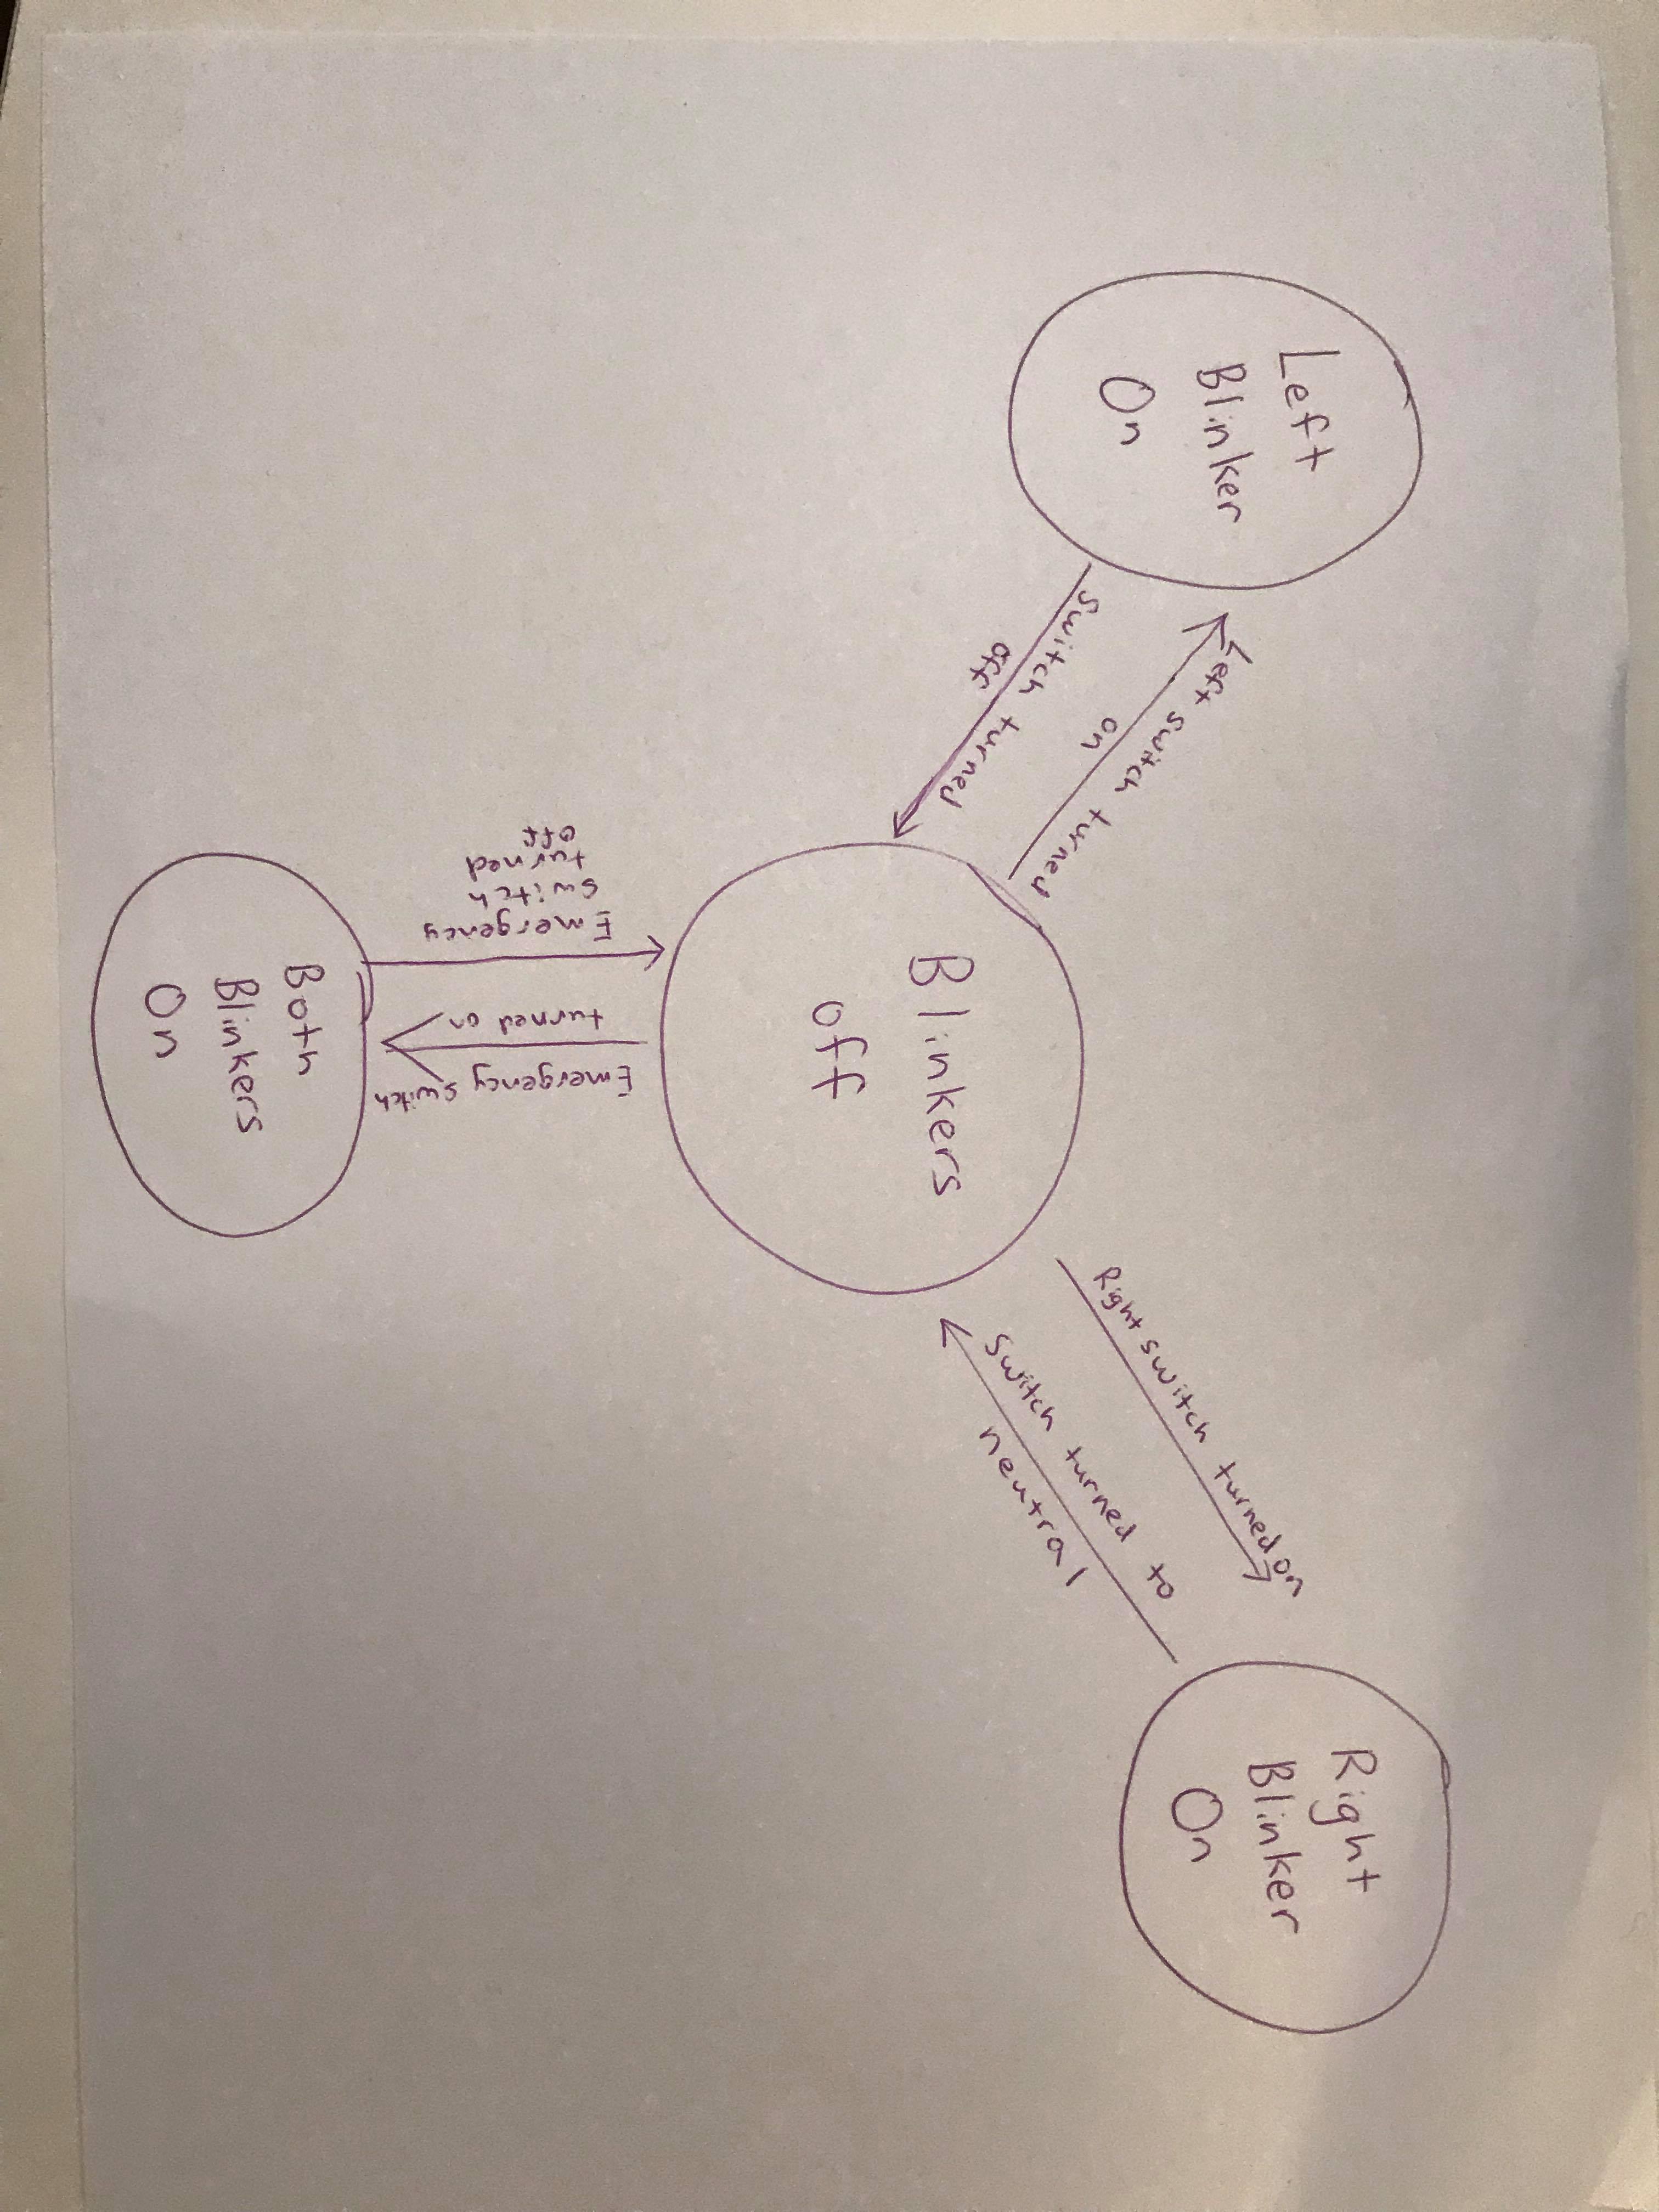 Left
Blinker
On
Left switch turned
on
Switch turned
off
Right
Blinker
On
Right switch turned on
Switch turned to
neutral
Blinkers
off
Emergency
switch
turned
off
Emergency switch
turned on
Both
Blinkers
On